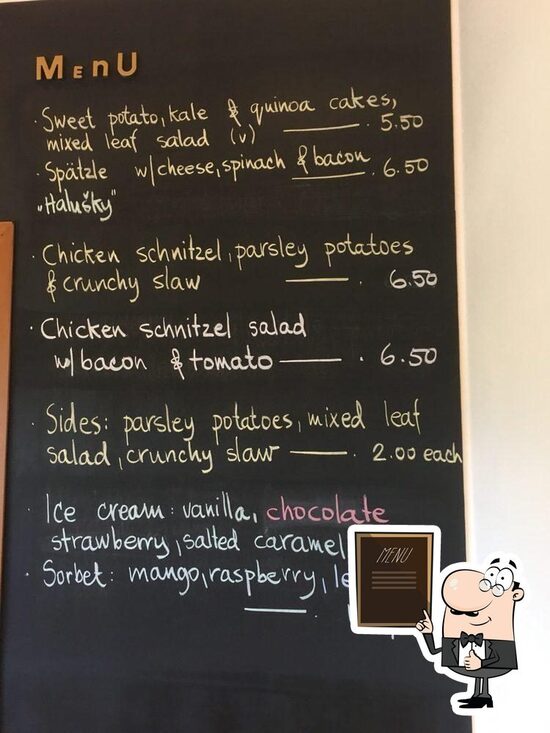 MEnU
· Sweet potato, kale & quinoa cakes,
mixed leaf salad (v) — . 5.50
· Spätzle w/cheese, spinach & bacon — . 6.50
„Halušky"
· Chicken schnitzel, parsley potatoes
& crunchy slaw — . 6.50
· Chicken schnitzel salad
w/bacon & tomato — . 6.50
· Sides: parsley potatoes, mixed leaf
salad, crunchy slaw — . 2.00 each
· Ice cream: vanilla, chocolate
strawberry, salted caramel
· Sorbet: mango, raspberry,
MENU